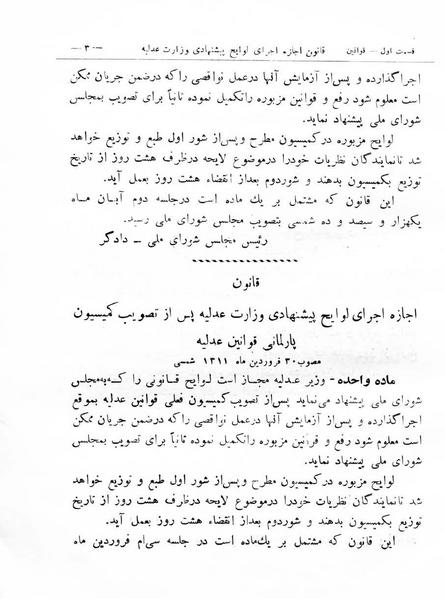 قسمت اول — قوانین قانون اجازه اجرای لوایح پیشنهادی وزارت عدلیه — ۳ —
اجرا گذارده و پس از آزمایش آنها در عمل نواقصی را که در ضمن جریان ممکن
است معلوم شود رفع و قوانین مزبوره را تکمیل نموده ثانیاً برای تصویب بمجلس
شورای ملی پیشنهاد نماید.
لوایح مزبوره در کمیسیون مطرح و پس از شور اول طبع و توزیع خواهد
شد تا نمایندگان نظریات خود را در موضوع لایحه در ظرف هشت روز از تاریخ
توزیع بکمیسیون بدهند و شور دوم بعد از انقضاء هشت روز بعمل آید.
این قانون که مشتمل بر یك ماده است در جلسه دوم آبان ماه
یکهزار و سیصد و ده شمسی بتصویب مجلس شورای ملی رسید.
رئیس مجلس شورای ملی ـ دادگر
قانون
اجازه اجرای لوایح پیشنهادی وزارت عدلیه پس از تصویب کمیسیون
پارلمانی قوانین عدلیه
مصوب ۳۰ فروردین ماه ۱۳۱۱ شمسی
ماده واحده- وزیر عدلیه مجاز است لوایح قانونی را که بمجلس
شورای ملی پیشنهاد مینماید پس از تصویب کمیسیون فعلی قوانین عدلیه بموقع
اجرا گذارده و پس از آزمایش آنها در عمل نواقصی را که در ضمن جریان ممکن
است معلوم شود رفع و قوانین مزبوره را تکمیل نموده ثانیاً برای تصویب بمجلس
شورای ملی پیشنهاد نماید.
لوایح مزبوره در کمیسیون مطرح و پس از شور اول طبع و توزیع خواهد
شد تا نمایندگان نظریات خود را در موضوع لایحه در ظرف هشت روز از تاریخ
توزیع بکمیسیون بدهند و شور دوم بعد از انقضاء هشت روز بعمل آید.
این قانون که مشتمل بر یك ماده است در جلسه سی‌ام فروردین ماه